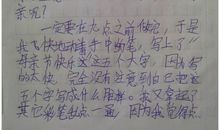 亲呢?
一定要在九点之前做完,于是
我飞快地动着手中的笔,写上了"
母亲节快乐"这五个大字,因为写
的太快,完全没有注意到自己把这
五个字写成什么模样。我又拿起了
其它彩笔点一画,因为我觉得点